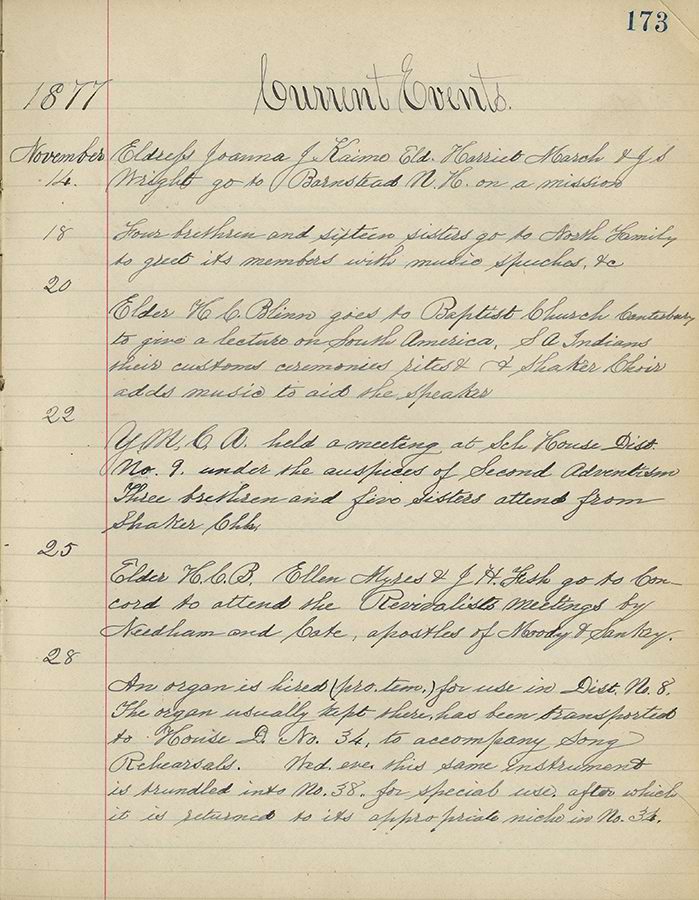 173
Current Events.
1877
November Eldress Joanna J Kaime Eld. Harriet March & J S
14. Wright go to Barnstead N. H. on a mission
18 Four brethren and sixteen sisters go to North Family
to greet its members with music speeches, &c
20
Elder H. C. Blinn goes to Baptist Church Canterbury
to give a lecture on South America, S A Indians
their customs ceremonies rites & & Shaker Choir
adds music to aid the speaker
22
Y. M. C. A. held a meeting at Sch House Dist.
No. 9. under the auspices of Second Adventism
Three brethren and five sisters attend from
Shaker Chh.
25
Elder H. C. B. Ellen Myres & J. H. Fish go to Con-
cord to attend the Revivalists meetings by
Needham and Cate, apostles of Moody & Sankey.
28
An organ is hired (pro. tem.) for use in Dist. No. 8.
The organ usually kept there, has been transported
to House D. No. 34, to accompany Song
Rehearsals. Wed. eve. this same instrument
is trundled into No. 38. for special use, after which
it is returned to its appropriate niche in No. 34.